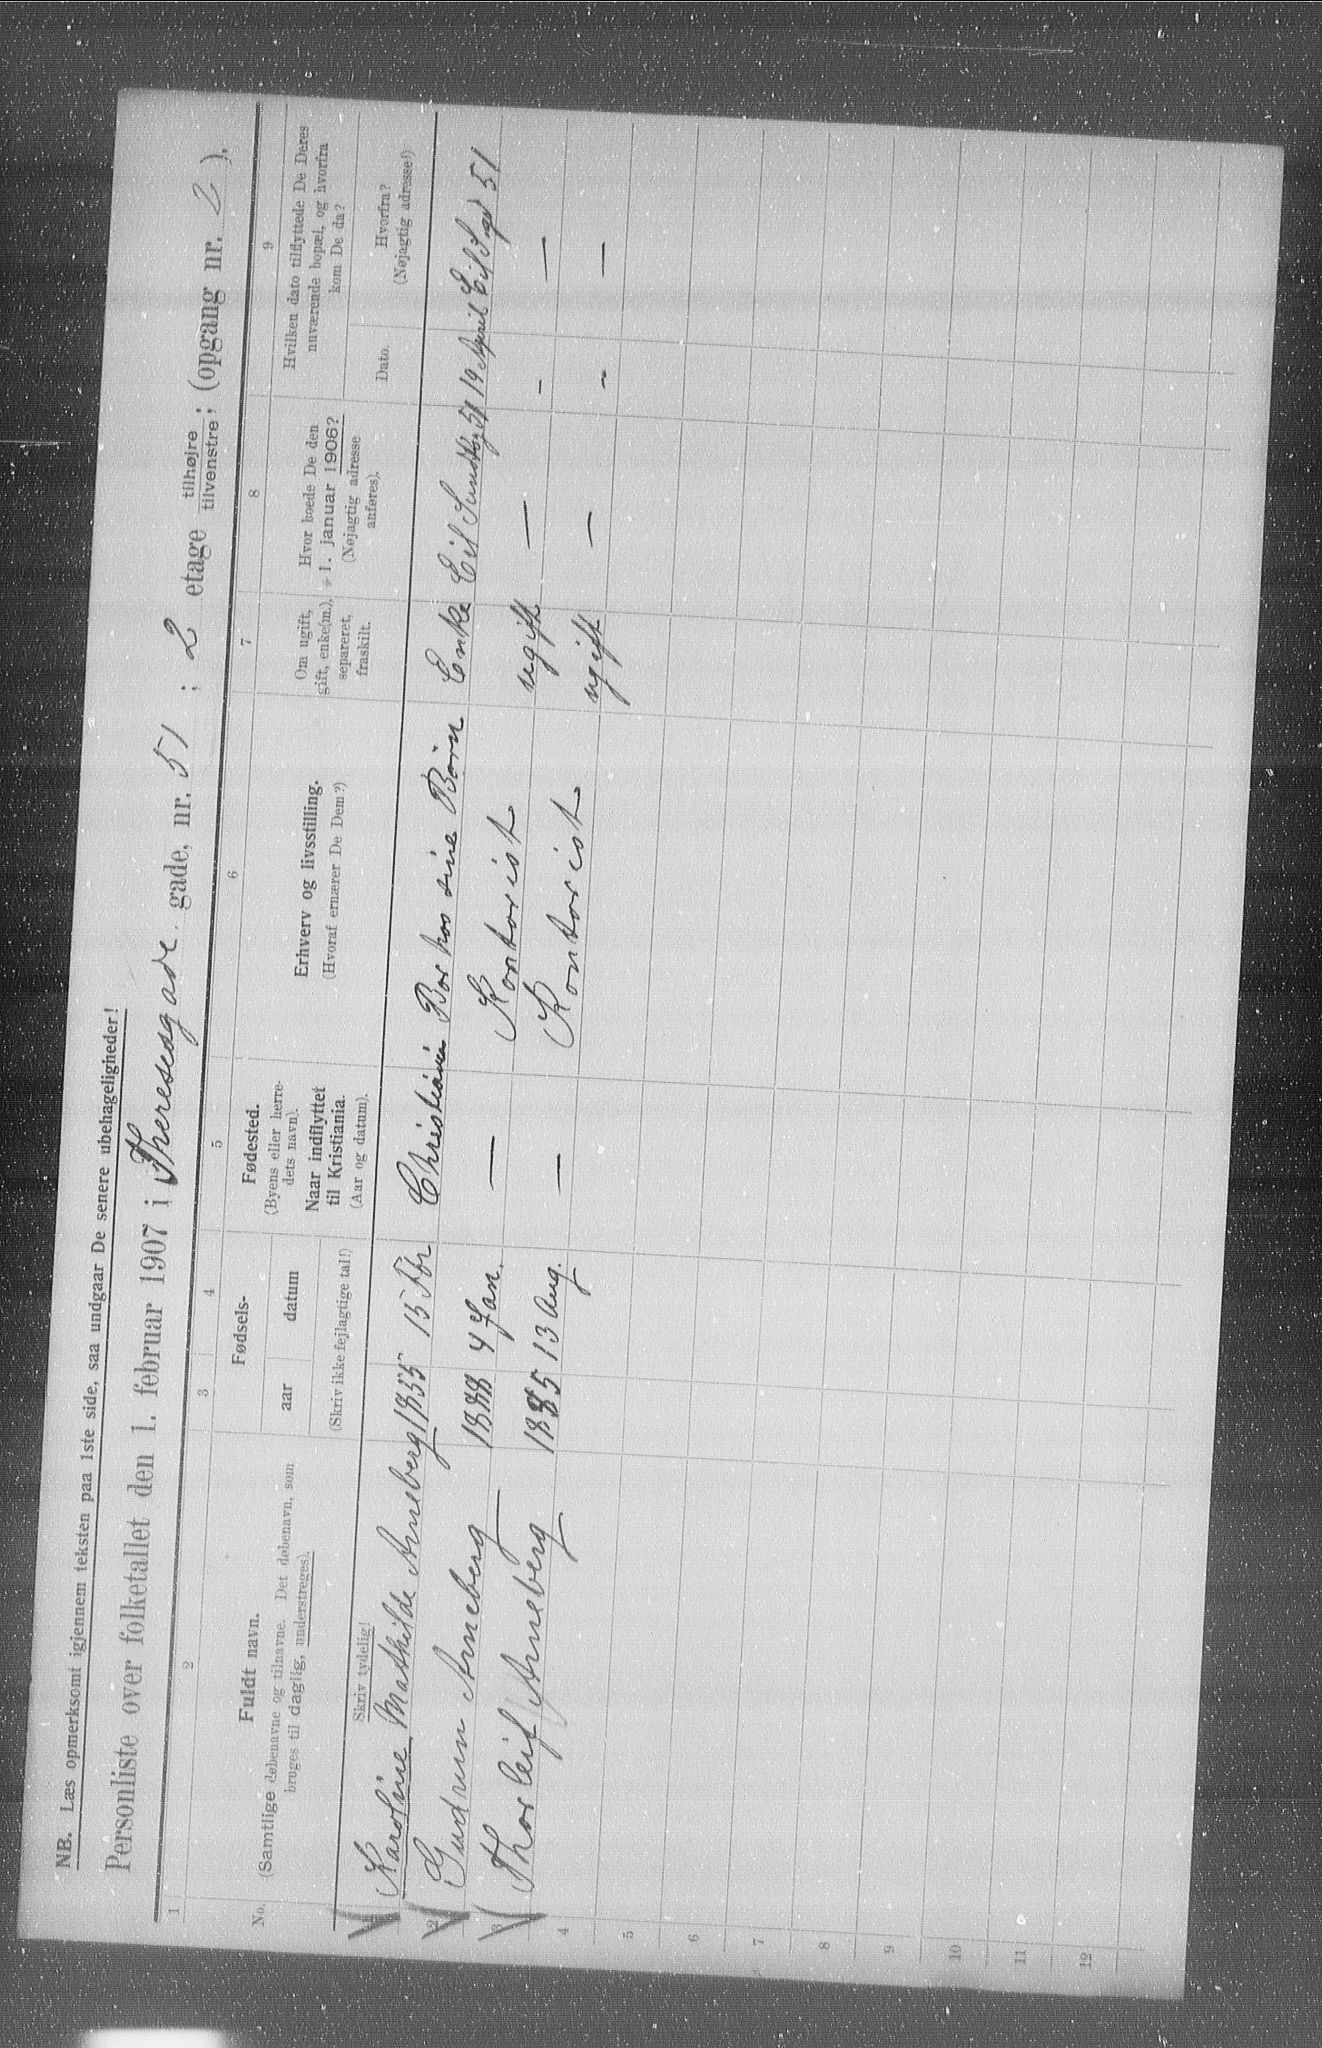 NB. Læs opmerksomt igjennem teksten paa 1ste side, saa undgaar De senere ubehageligheder!
Personliste over folketallet den 1. februar 1907 i Theresesgade gade, nr. 51 ; 2 etage tilhøjre tilvenstre; (opgang nr. 2 ).
1 2 3 4 5 6 7 8 9
No.
Fuldt navn.
(Samtlige døbenavne og tilnavne. Det døbenavn, som
bruges til daglig, understreges).
Skriv tydelig!
Fødsels-
aar datum
(Skriv ikke fejlagtige tal!)
Fødested.
(Byens eller herre-
dets navn).
Naar indflyttet
til Kristiania.
(Aar og datum).
Erhverv og livsstilling.
(Hvoraf ernærer De Dem?)
Om ugift,
gift, enke(m.),
separeret,
fraskilt.
Hvor boede De den
1. januar 1906?
(Nøjagtig adresse
anføres).
Hvilken dato tilflyttede De Deres
nuværende bopæl, og hvorfra
kom De da?
Dato.
Hvorfra?
(Nøjagtig adresse!)
Karoline Mathilde Arneberg 1855 15 Christiania Bor hos sine Børn Enke Eil Sundtsg 51 19 April Eil 51
2 Gudrun Arneberg 1888 4 Jan. — Kontorist ugift — - —
3 Thorleif Arneberg 1885 13 Aug. — Kontorist ugift — - —
4
5
6
7
8
9
10
11
12